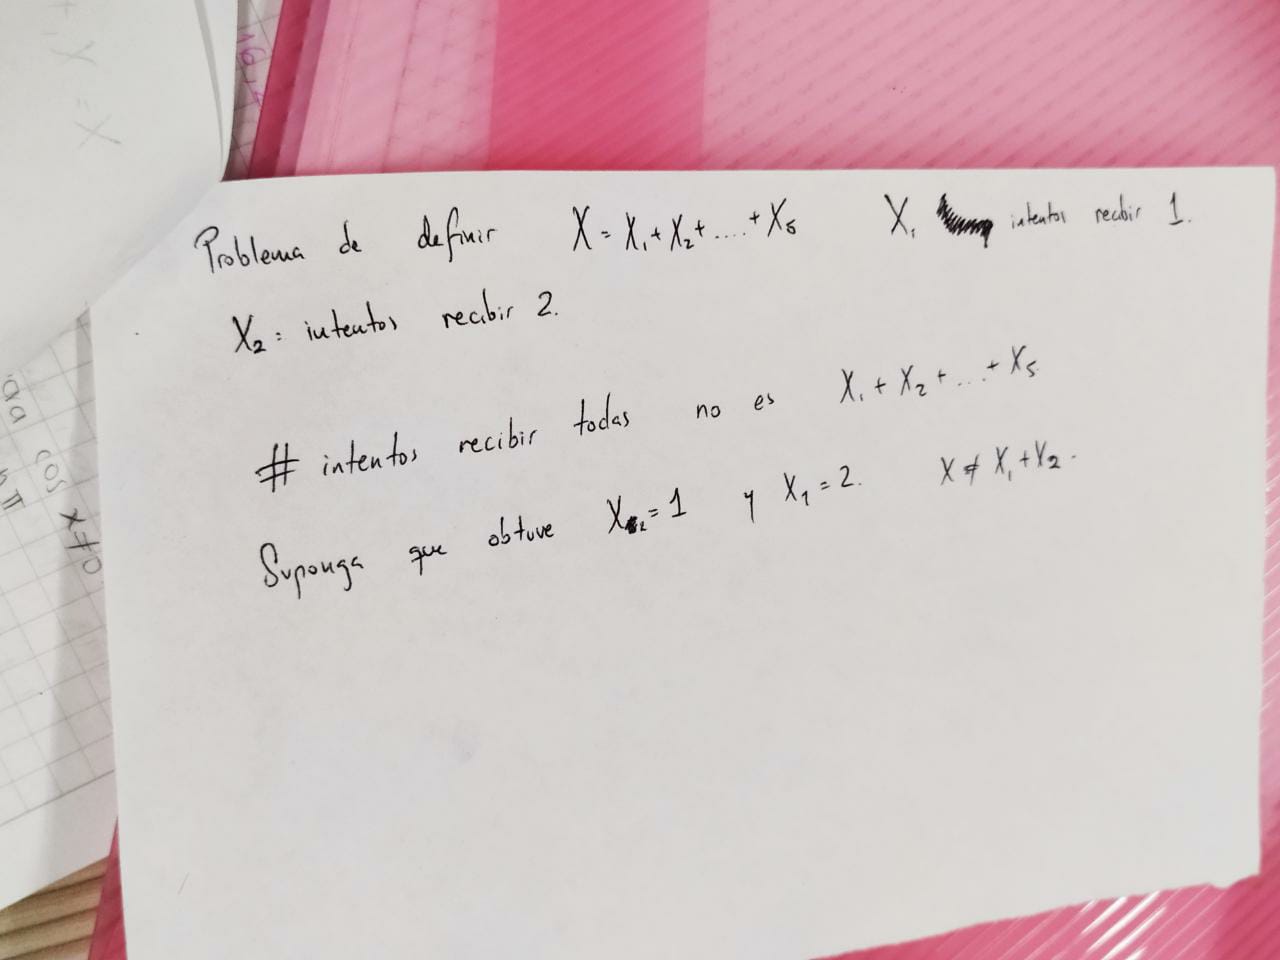 Problema de definir X = X₁ + X₂ + .... + X₅ X₁ intentos recibir 1.
X₂ = intentos recibir 2.
# intentos recibir todas no es X₁ + X₂ + ... + X₅
Suponga que obtuve X₂ = 1 y X₁ = 2. X ≠ X₁ + X₂.
16
+ Y = X
cos x ≠ 0
π